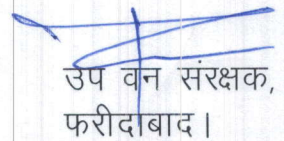 उप वन संरक्षक,
फरीदाबाद।